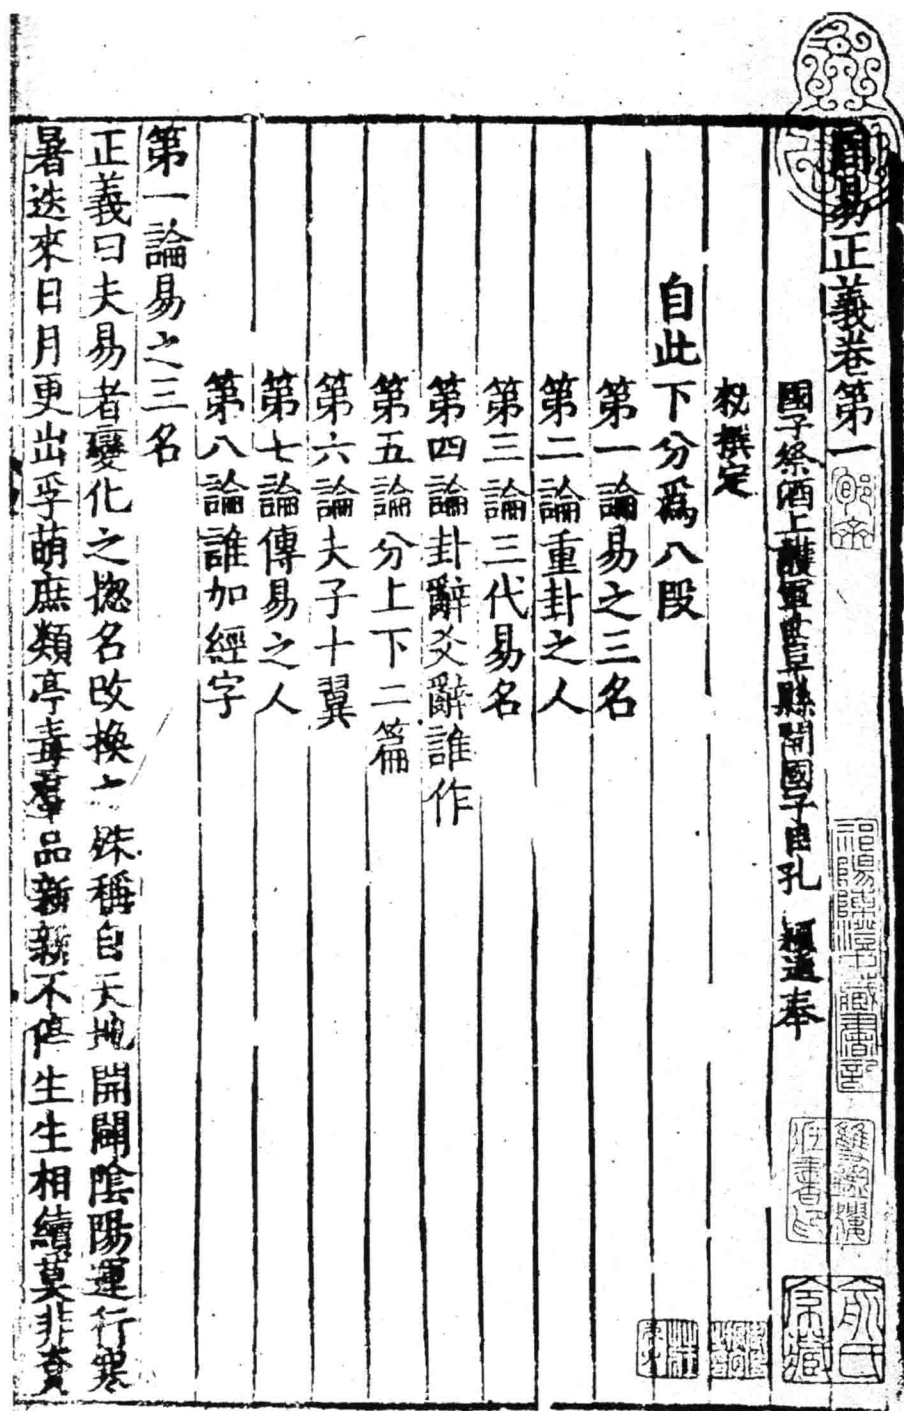 周易正義卷第一
國子祭酒上護軍曲阜縣開國子臣孔 穎達奉
勑撰定
自此下分爲八段
第一論易之三名
第二論重卦之人
第三論三代易名
第四論卦辭爻辭誰作
第五論分上下二篇
第六論夫子十翼
第七論傳易之人
第八論誰加經字
第一論易之三名
正義曰夫易者變化之揔名改換之殊稱自天地開闢陰陽運行寒
暑迭來日月更出孚萌庶類亭毒羣品新新不停生生相續莫非資
俞氏